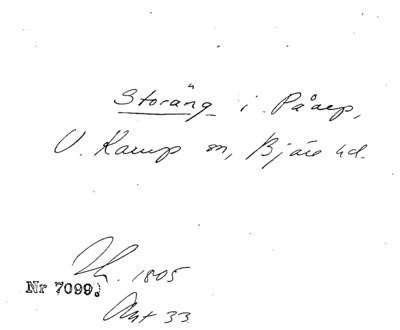 Storäng i Påarp,
V. Karup sn, Bjäre hd.
Nr 7099. 1805
Akt 33